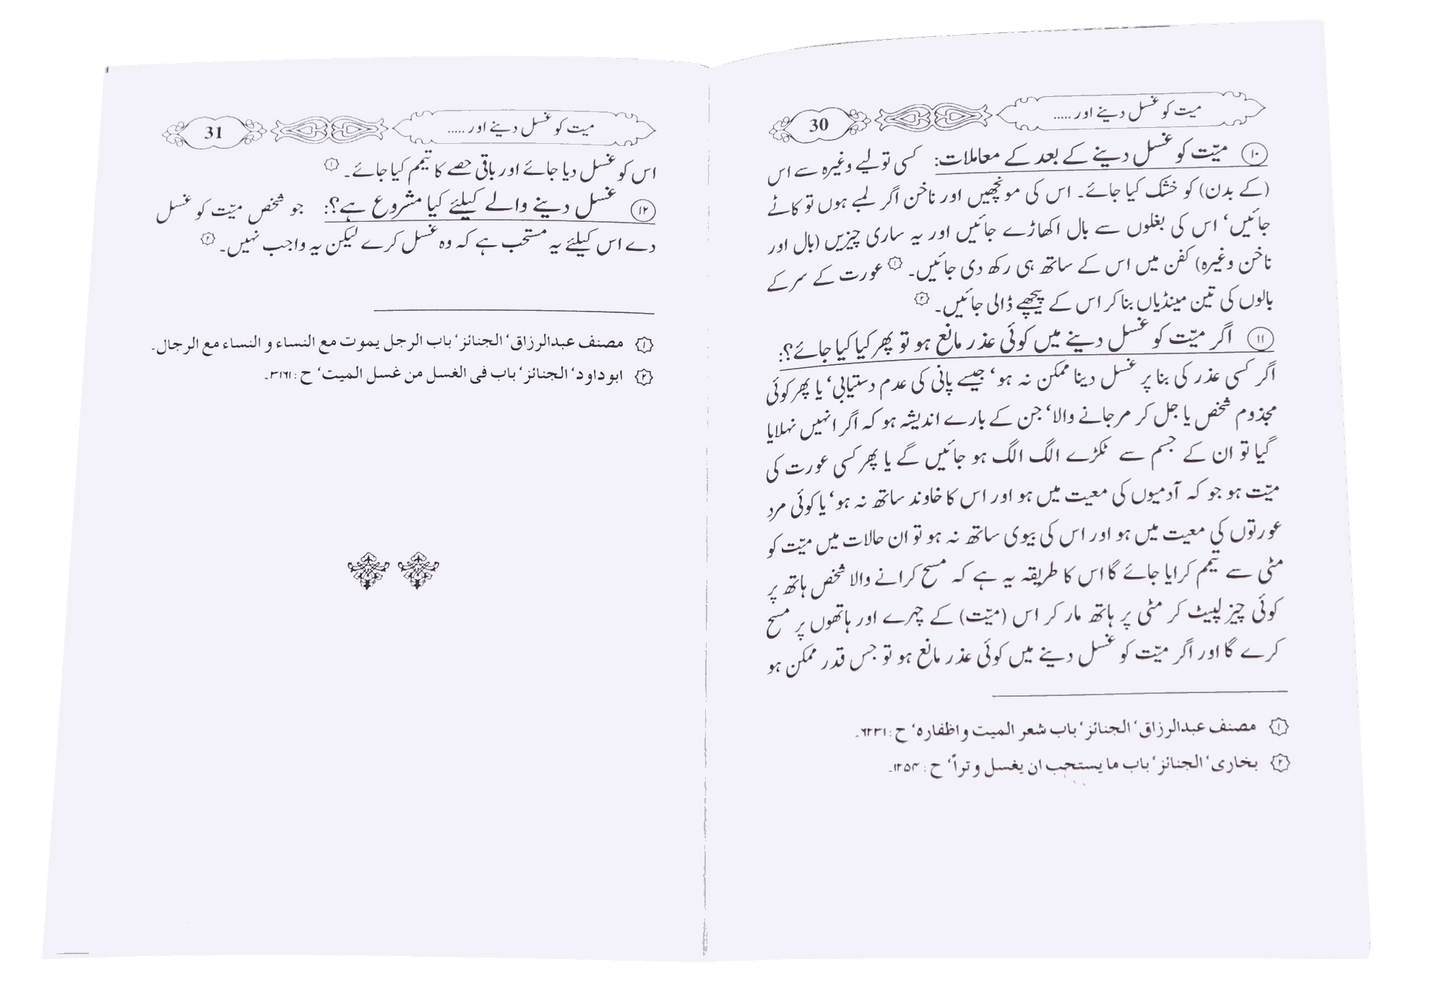 میّت کو غسل دینے اور .....
30
⑩ میّت کو غسل دینے کے بعد کے معاملات: کسی تولیے وغیرہ سے اس
(کے بدن) کو خشک کیا جائے۔ اس کی مونچھیں اور ناخن اگر لمبے ہوں تو کاٹے
جائیں‘ اس کی بغلوں سے بال اکھاڑے جائیں اور یہ ساری چیزیں (بال اور
ناخن وغیرہ) کفن میں اس کے ساتھ ہی رکھ دی جائیں۔ ۱ عورت کے سر کے
بالوں کی تین مینڈیاں بنا کر اس کے پیچھے ڈالی جائیں۔ ۲
⑪ اگر میّت کو غسل دینے میں کوئی عذر مانع ہو تو پھر کیا کیا جائے؟:
اگر کسی عذر کی بنا پر غسل دینا ممکن نہ ہو‘ جیسے پانی کی عدم دستیابی‘ یا پھر کوئی
مجذوم شخص یا جل کر مر جانے والا‘ جن کے بارے اندیشہ ہو کہ اگر انہیں نہلایا
گیا تو ان کے جسم سے ٹکڑے الگ الگ ہو جائیں گے یا پھر کسی عورت کی
میّت ہو جو کہ آدمیوں کی معیت میں ہو اور اس کا خاوند ساتھ نہ ہو‘ یا کوئی مرد
عورتوں کی معیت میں ہو اور اس کی بیوی ساتھ نہ ہو تو ان حالات میں میّت کو
مٹی سے تیمم کرایا جائے گا اس کا طریقہ یہ ہے کہ مسح کرانے والا شخص ہاتھ پر
کوئی چیز لپیٹ کر مٹی پر ہاتھ مار کر اس (میّت) کے چہرے اور ہاتھوں پر مسح
کرے گا اور اگر میّت کو غسل دینے میں کوئی عذر مانع ہو تو جس قدر ممکن ہو
۱ مصنف عبدالرزاق‘ الجنائز‘ باب شعر المیت و اظفارہ‘ ح : ۶۲۳۱۔
۲ بخاری‘ الجنائز‘ باب ما یستحب ان یغسل وتراً‘ ح : ۱۲۵۴۔
میّت کو غسل دینے اور .....
31
اس کو غسل دیا جائے اور باقی حصے کا تیمم کیا جائے۔ ۱
⑫ غسل دینے والے کیلئے کیا مشروع ہے؟: جو شخص میّت کو غسل
دے اس کیلئے یہ مستحب ہے کہ وہ غسل کرے لیکن یہ واجب نہیں۔ ۲
۱ مصنف عبدالرزاق‘ الجنائز‘ باب الرجل یموت مع النساء و النساء مع الرجال۔
۲ ابوداود‘ الجنائز‘ باب فی الغسل من غسل المیت‘ ح : ۳۱۶۱۔